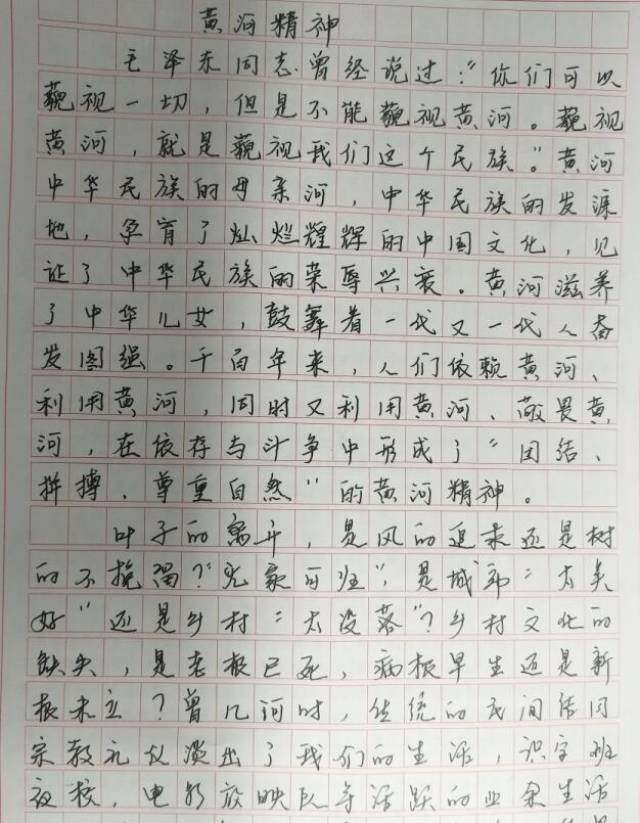 黄河精神
毛泽东同志曾经说过："你们可以
藐视一切，但是不能藐视黄河。藐视
黄河，就是藐视我们这个民族。"黄河
中华民族的母亲河，中华民族的发源
地，孕育了灿烂辉煌的中国文化，见
证了中华民族的荣辱兴衰。黄河滋养
了中华儿女，鼓舞着一代又一代人奋
发图强。千百年来，人们依赖黄河、
利用黄河，同时又利用黄河、敬畏黄
河，在依存与斗争中形成了"团结、
拼搏、尊重自然"的黄河精神。
叶子的离开，是风的追求还是树
的不挽留？"无家可归"，是城市"太美
好"还是乡村"太没落"？乡村文化的
缺失，是老根已死，病根早生还是新
根未立？曾几何时，传统的民间信仰
宗教礼仪淡出了我们的生活，识字班
夜校，电影放映队等活跃的业余生活